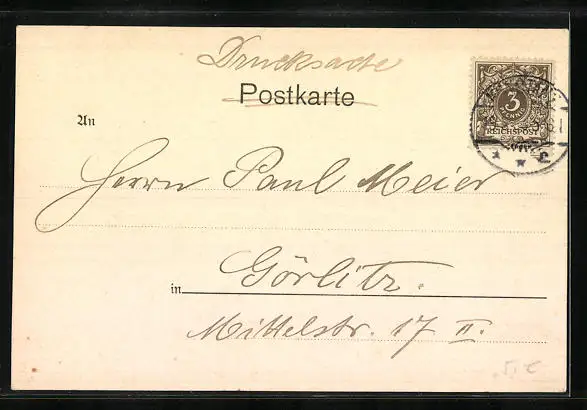 Drucksache
Postkarte
3
PFENNIG
REICHSPOST
An
Herrn Paul Meier
Görlitz.
in
Mittelstr. 17 II.